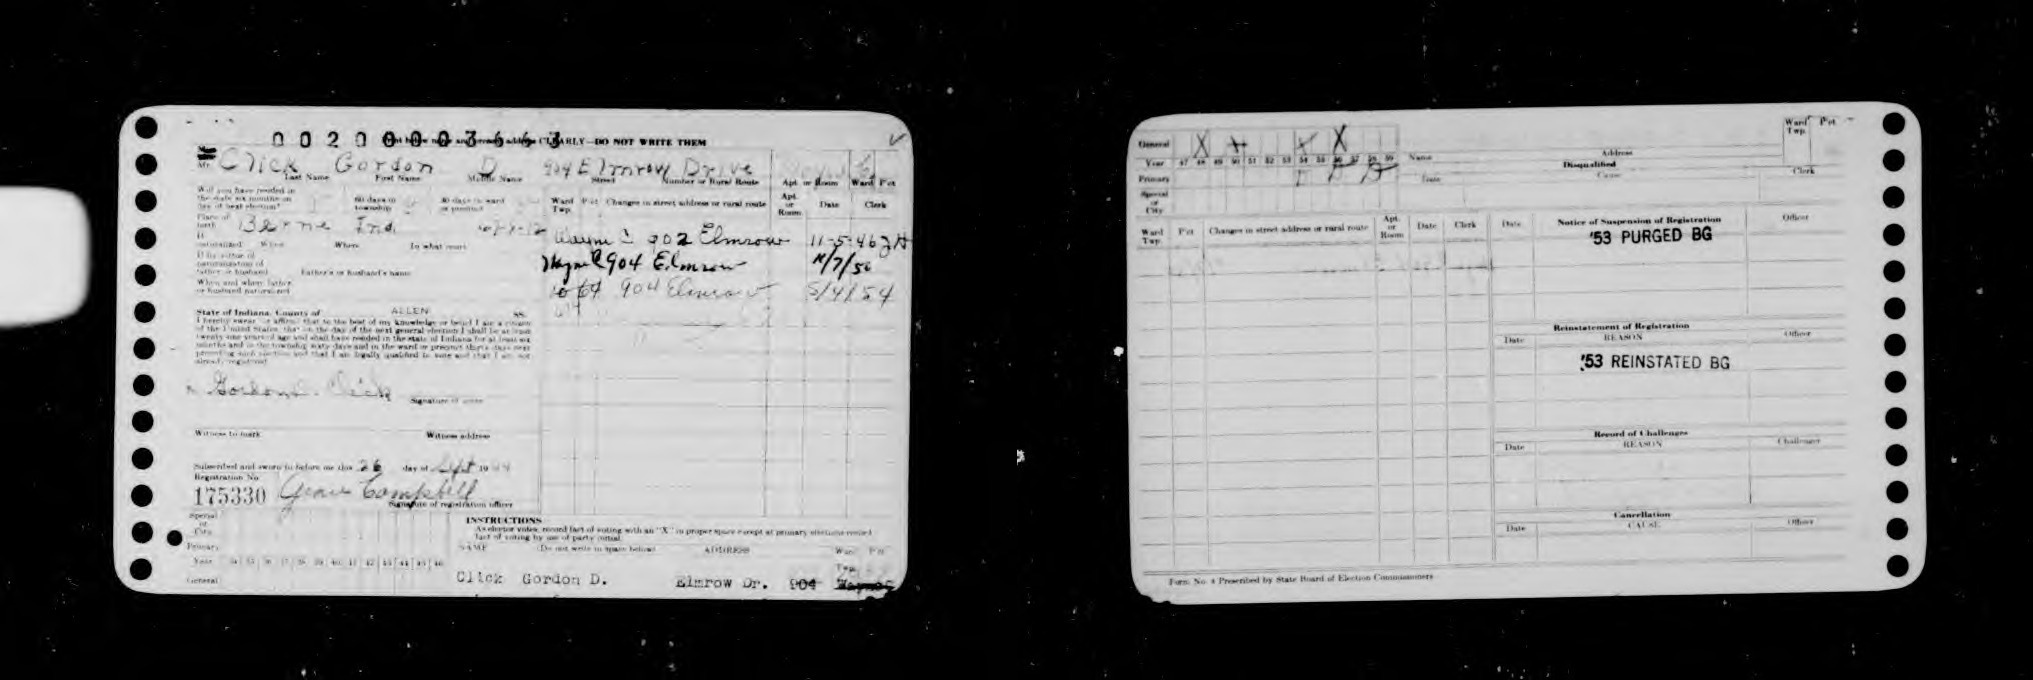 002000003663
Print below name and present address CLEARLY—DO NOT WRITE THEM
Mr. Click Gordon D. 904 Elmrow Drive
Last Name First Name Middle Name Street Number or Rural Route Apt. or Room Ward P'ct
Will you have resided in
the state six months on
day of next election?
60 days in
township
30 days in ward
or precinct
Ward Twp. P'ct Changes in street address or rural route Apt. or Room Date Clerk
Place of
birth Berne Ind
If
naturalized When Where In what court
Wayne C 902 Elmrow 11-5-46
If by virtue of
naturalization of
father or husband Father's or husband's name
Wayne C 904 Elmrow 11/7/50
When and where father
or husband naturalized
904 Elmrow 5/4/54
State of Indiana, County of ALLEN SS.
I hereby swear or affirm that to the best of my knowledge or belief I am a citizen
of the United States, that on the day of the next general election I shall be at least
twenty-one years of age and shall have resided in the state of Indiana for at least six
months and in the township sixty days and in the ward or precinct thirty days next
preceding such election and that I am legally qualified to vote and that I am not
already registered
Gordon D. Click
Signature of voter
Witness to mark Witness address
Subscribed and sworn to before me this 26 day of Sept 1944
Registration No.
175330 Grace Campbell
Signature of registration officer
Special
or
City
INSTRUCTIONS
As elector votes, record fact of voting with an "X" in proper space except at primary elections record
fact of voting by use of party initial.
Primary
NAME (Do not write in space below) ADDRESS Ward P'ct
Twp.
Year 34 35 36 37 38 39 40 41 42 43 44 45 46
General
Click Gordon D. Elmrow Dr. 904 Wayne C
General X X X X
Year 47 48 49 50 51 52 53 54 55 56 57 58 59
Name Address
Ward
Twp. P'ct
Disqualified
Primary
Date Cause Clerk
Special
or
City
Ward
Twp. P'ct Changes in street address or rural route Apt. or Room Date Clerk
Date Notice of Suspension of Registration Officer
'53 PURGED BG
Reinstatement of Registration
Date REASON Officer
'53 REINSTATED BG
Record of Challenges
Date REASON Challenger
Cancellation
Date CAUSE Officer
Form No. 4 Prescribed by State Board of Election Commissioners